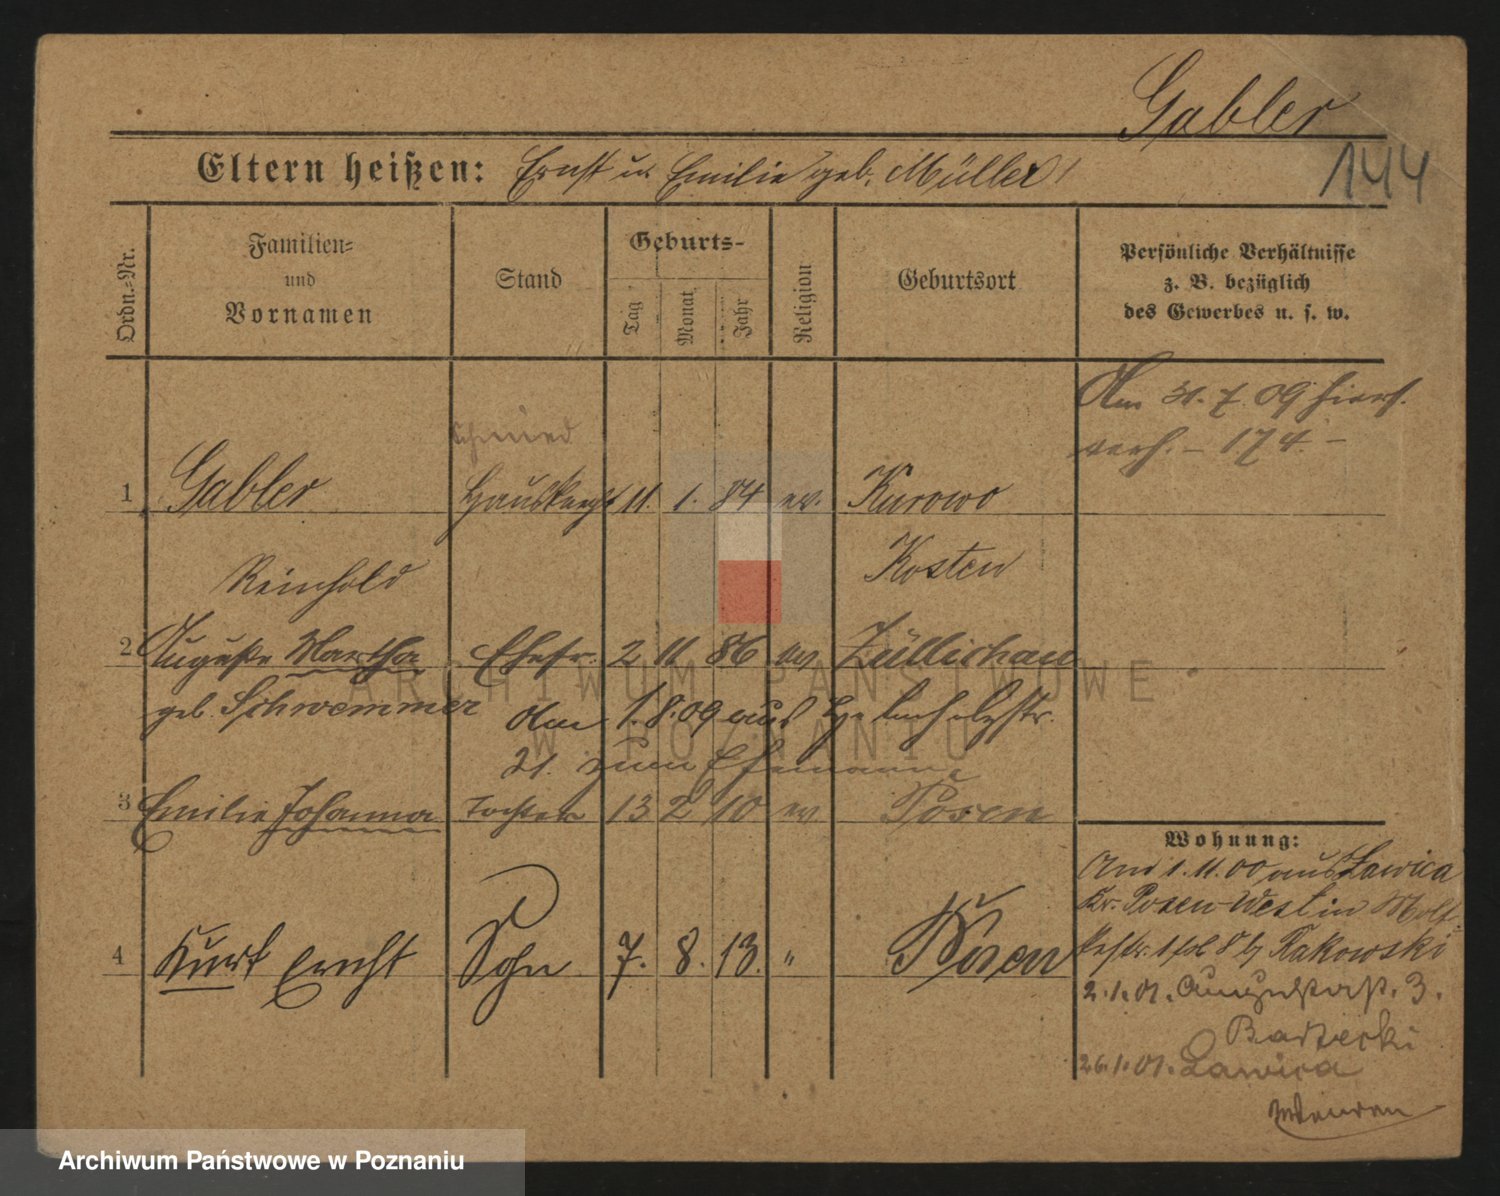 Gabler
144
Eltern heißen: Ernst u. Emilie geb. Müller
Ordn.-Nr.
Familien-
und
Vornamen
Stand
Geburts-
Tag
Monat
Jahr
Religion
Geburtsort
Persönliche Verhältnisse
z. B. bezüglich
des Gewerbes u. s. w.
Am 31. 7. 09 hiers.
verh. – 174. –
Schmied
1 Gabler Hausknecht 11. 1. 84 ev. Kurowo
Reinhold Kosten
2 Auguste Martha Ehefr. 2 11 86 ev Züllichau
geb. Schwemmer Am 1. 8. 09 aus
21. zum Ehemann
3 Emilie Johanna Tochter 13 2 10 ev Posen
4 Kurt Ernst Sohn 7. 8. 13. " Posen
Wohnung:
Am 1. 11. 00 aus Lawica
Kr. Posen West in Molt
kestr. 8 Rakowski
2. 1. 01. 3.
26. 1. 01. Lawica
ARCHIWUM PAŃSTWOWE
W POZNANIU
Archiwum Państwowe w Poznaniu